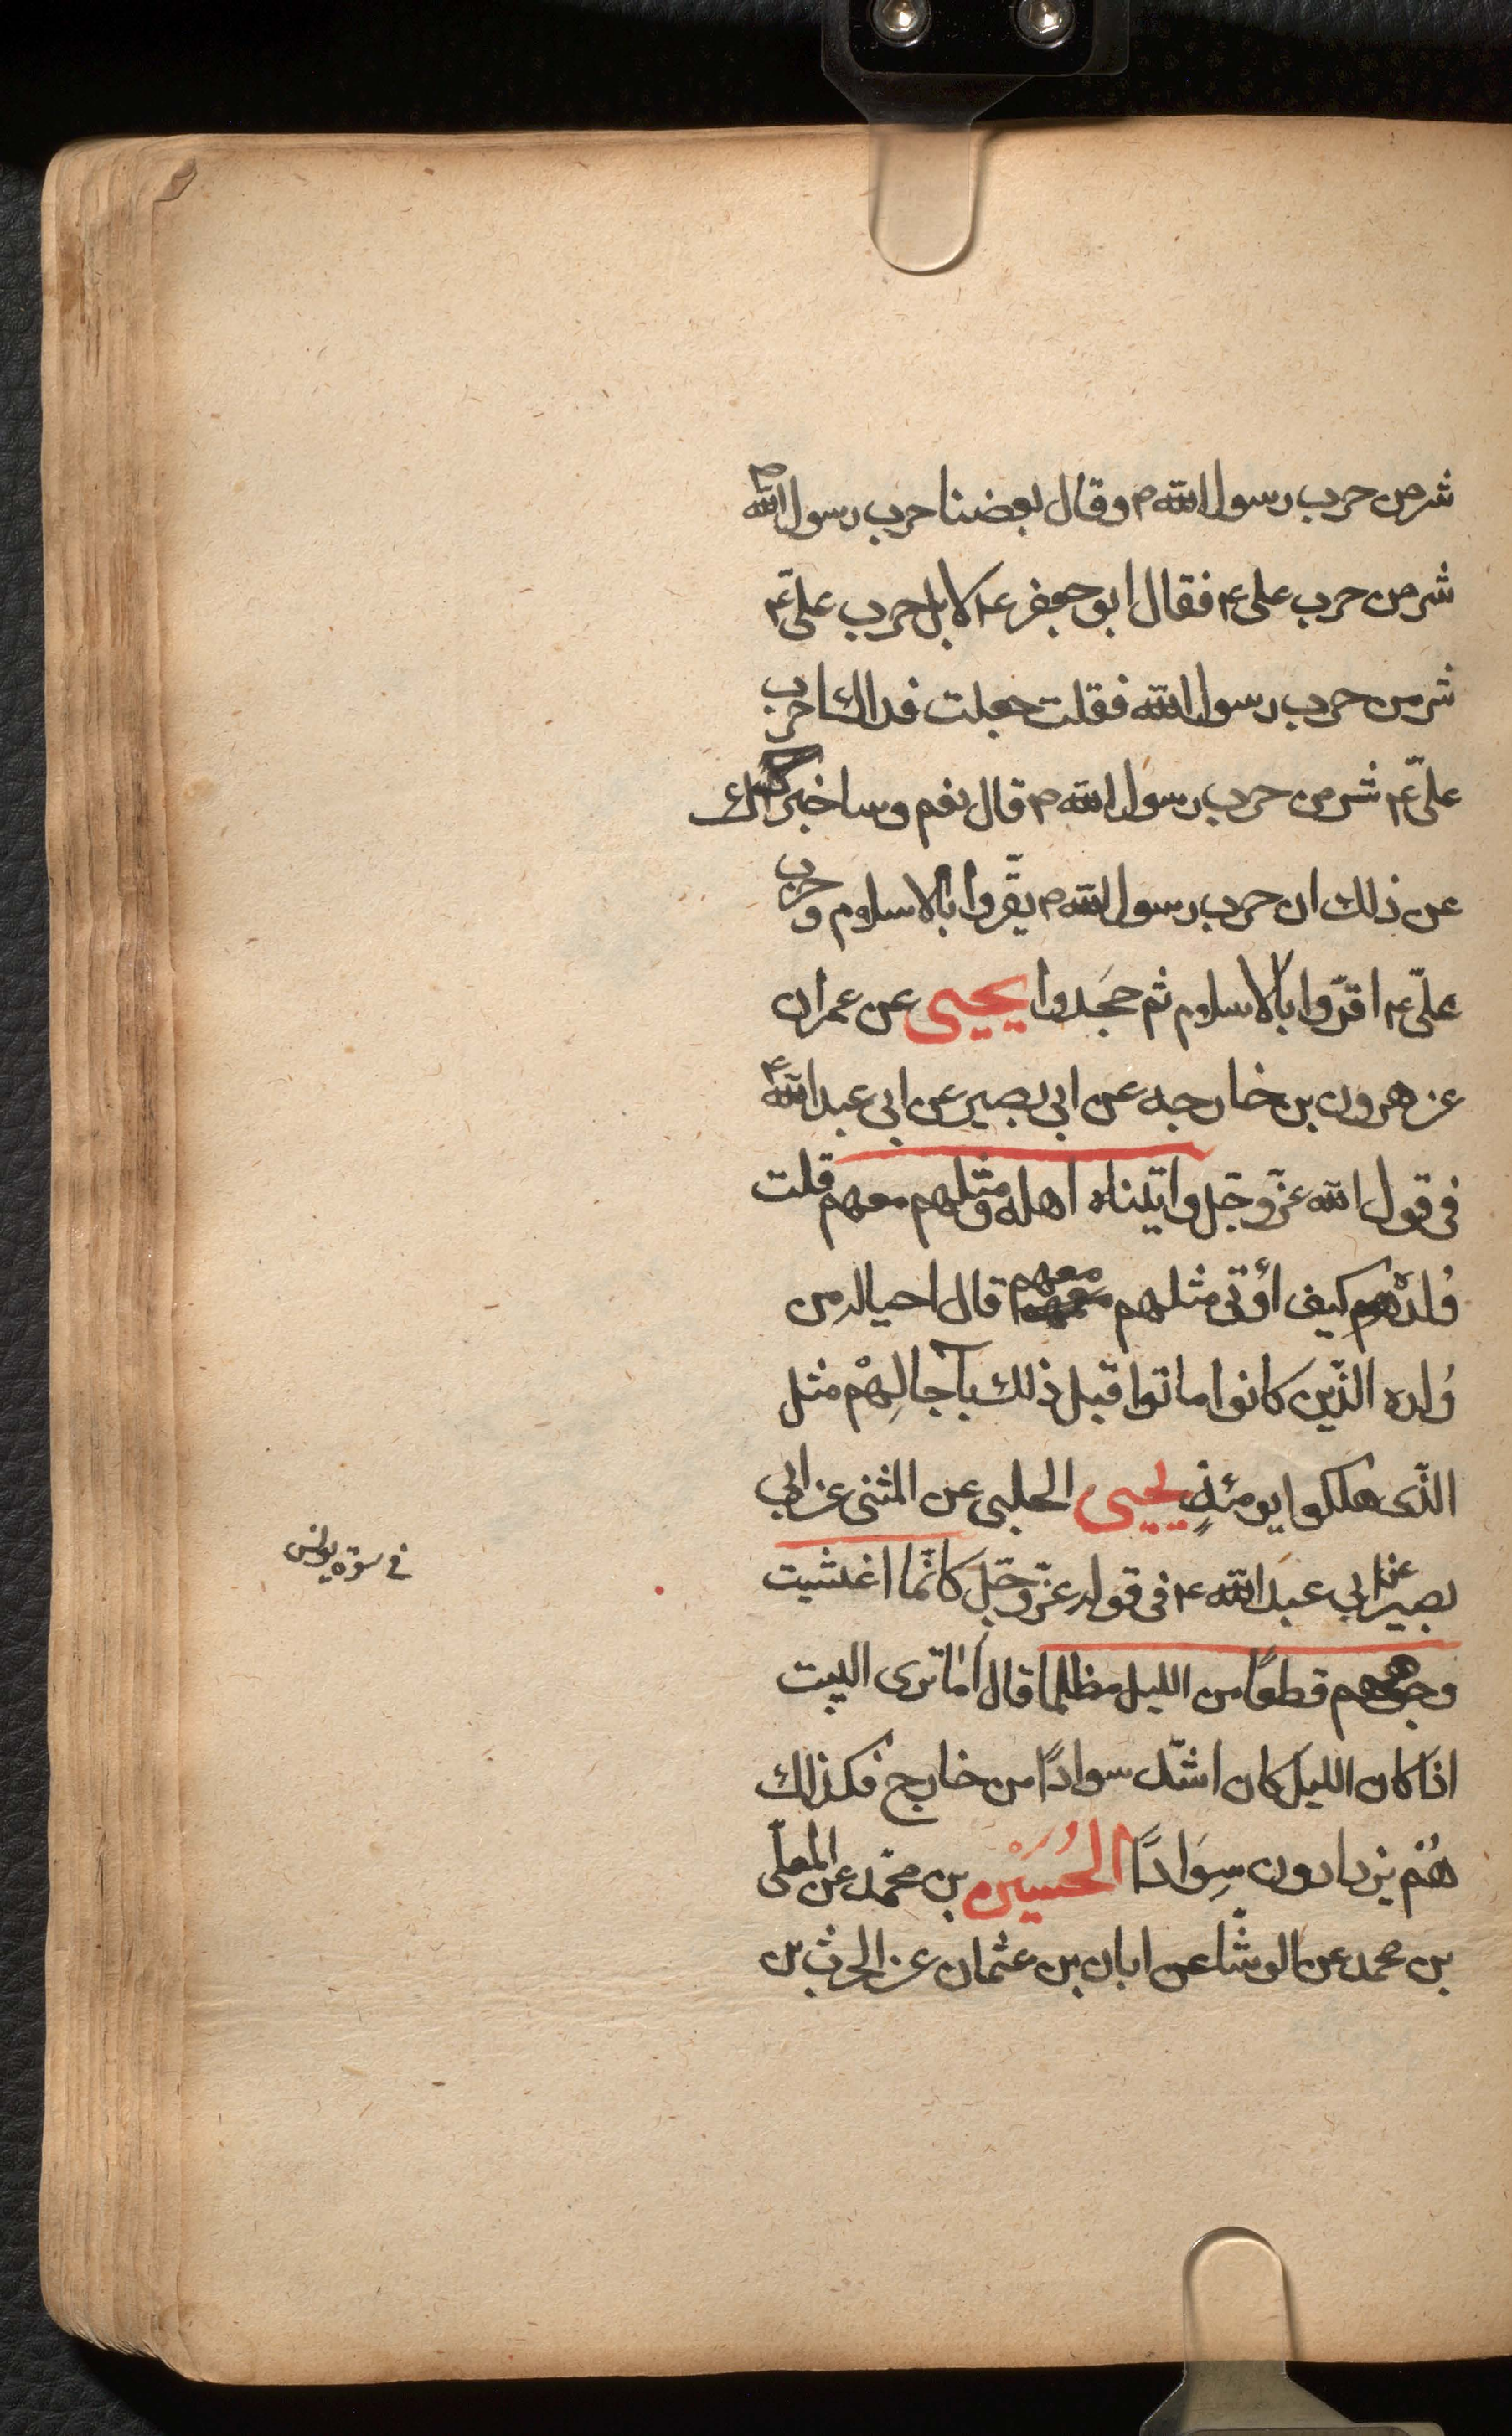 شر من حرب رسول الله ص وقال بعضنا حرب رسول الله ص
شر من حرب على ع فقال ابو جعفر ع لا بل حرب علىّ ع
شر من حرب رسول الله فقلت جعلت فداك احرب
علىّ ع شر من حرب رسول الله ص قال نعم وساخبرك
عن ذلك ان حرب رسول الله ص لم يقّروا بالاسلام و حرب
علىّ ع اقرّوا بالاسلام ثم جحَدوا يحيى عن عمران
عن هرون بن خارجه عن ابى بصير عن ابى عبد الله ع
فى قول الله عزّ وجّل واتيناه اهله ومثلهم معهم قلت
وُلده كيف أوتى مثلهم معهم قال احيا له من
وُلده الذّين كانوا ماتوا قبل ذلك بآجالِهِمْ مثل
الذّى هلكوا يومئذٍ يحيى الحلبى عن المثنى عن ابى
بصير عن ابى عبد الله ع فى قوله عزّ وجّل كانّما اغشيت
وجوههم قطعًا من الليل مظلما قال أما ترى البيت
اذا كان الليل كان اشدّ سوادًا من خارج فكذلك
هُمْ يزدادون سِوَادًا الحُسَيْن بن محّمد عن المعلّى
بن محمد عن الوشّا عن ابان بن عثمان عن الحرث بن
فى سوره يونس